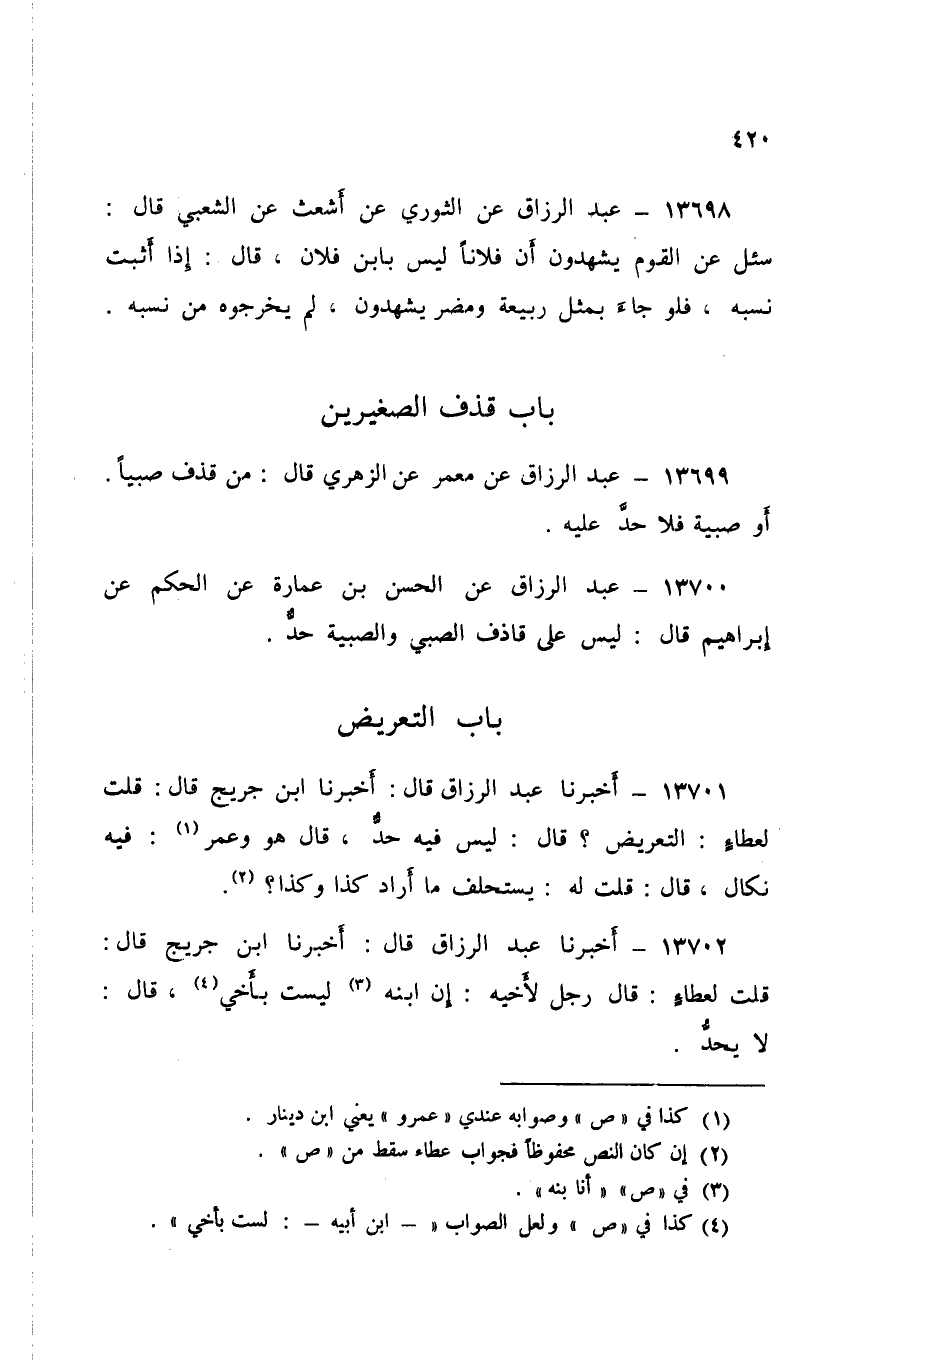 ٤٢٠
١٣٦٩٨ – عبد الرزاق عن الثوري عن أشعث عن الشعبي قال :
سئل عن القوم يشهدون أن فلاناً ليس بابن فلان ، قال : إذا أثبت
نسبه ، فلو جاءَ بمثل ربيعة ومضر يشهدون ، لم يخرجوه من نسبه .
باب قذف الصغيرين
١٣٦٩٩ – عبد الرزاق عن معمر عن الزهري قال : من قذف صبياً .
أو صبية فلا حدَّ عليه .
١٣٧٠٠ – عبد الرزاق عن الحسن بن عمارة عن الحكم عن
إبراهيم قال : ليس على قاذف الصبي والصبية حدٌّ .
باب التعريض
١٣٧٠١ – أخبرنا عبد الرزاق قال : أخبرنا ابن جريج قال : قلت
لعطاءٍ : التعريض ؟ قال : ليس فيه حدٌّ ، قال هو وعمر (١) : فيه
نكال ، قال : قلت له : يستحلف ما أراد كذا وكذا؟ (٢).
١٣٧٠٢ – أخبرنا عبد الرزاق قال : أخبرنا ابن جريج قال :
قلت لعطاءٍ : قال رجل لأخيه : إن ابنه (٣) ليست بأخي(٤) ، قال :
لا يحدُّ .
(١) كذا في « ص » وصوابه عندي « عمرو » يعني ابن دينار .
(٢) إن كان النص محفوظاً فجواب عطاء سقط من « ص » .
(٣) في «ص» « أنا بنه» .
(٤) كذا في «ص » ولعل الصواب « – ابن أبيه – : لست بأخي » .